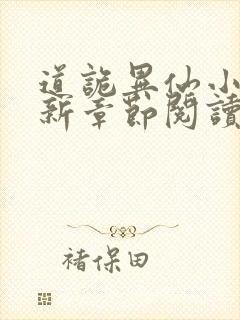 道詭異仙小
新章節閱讀
褚保田